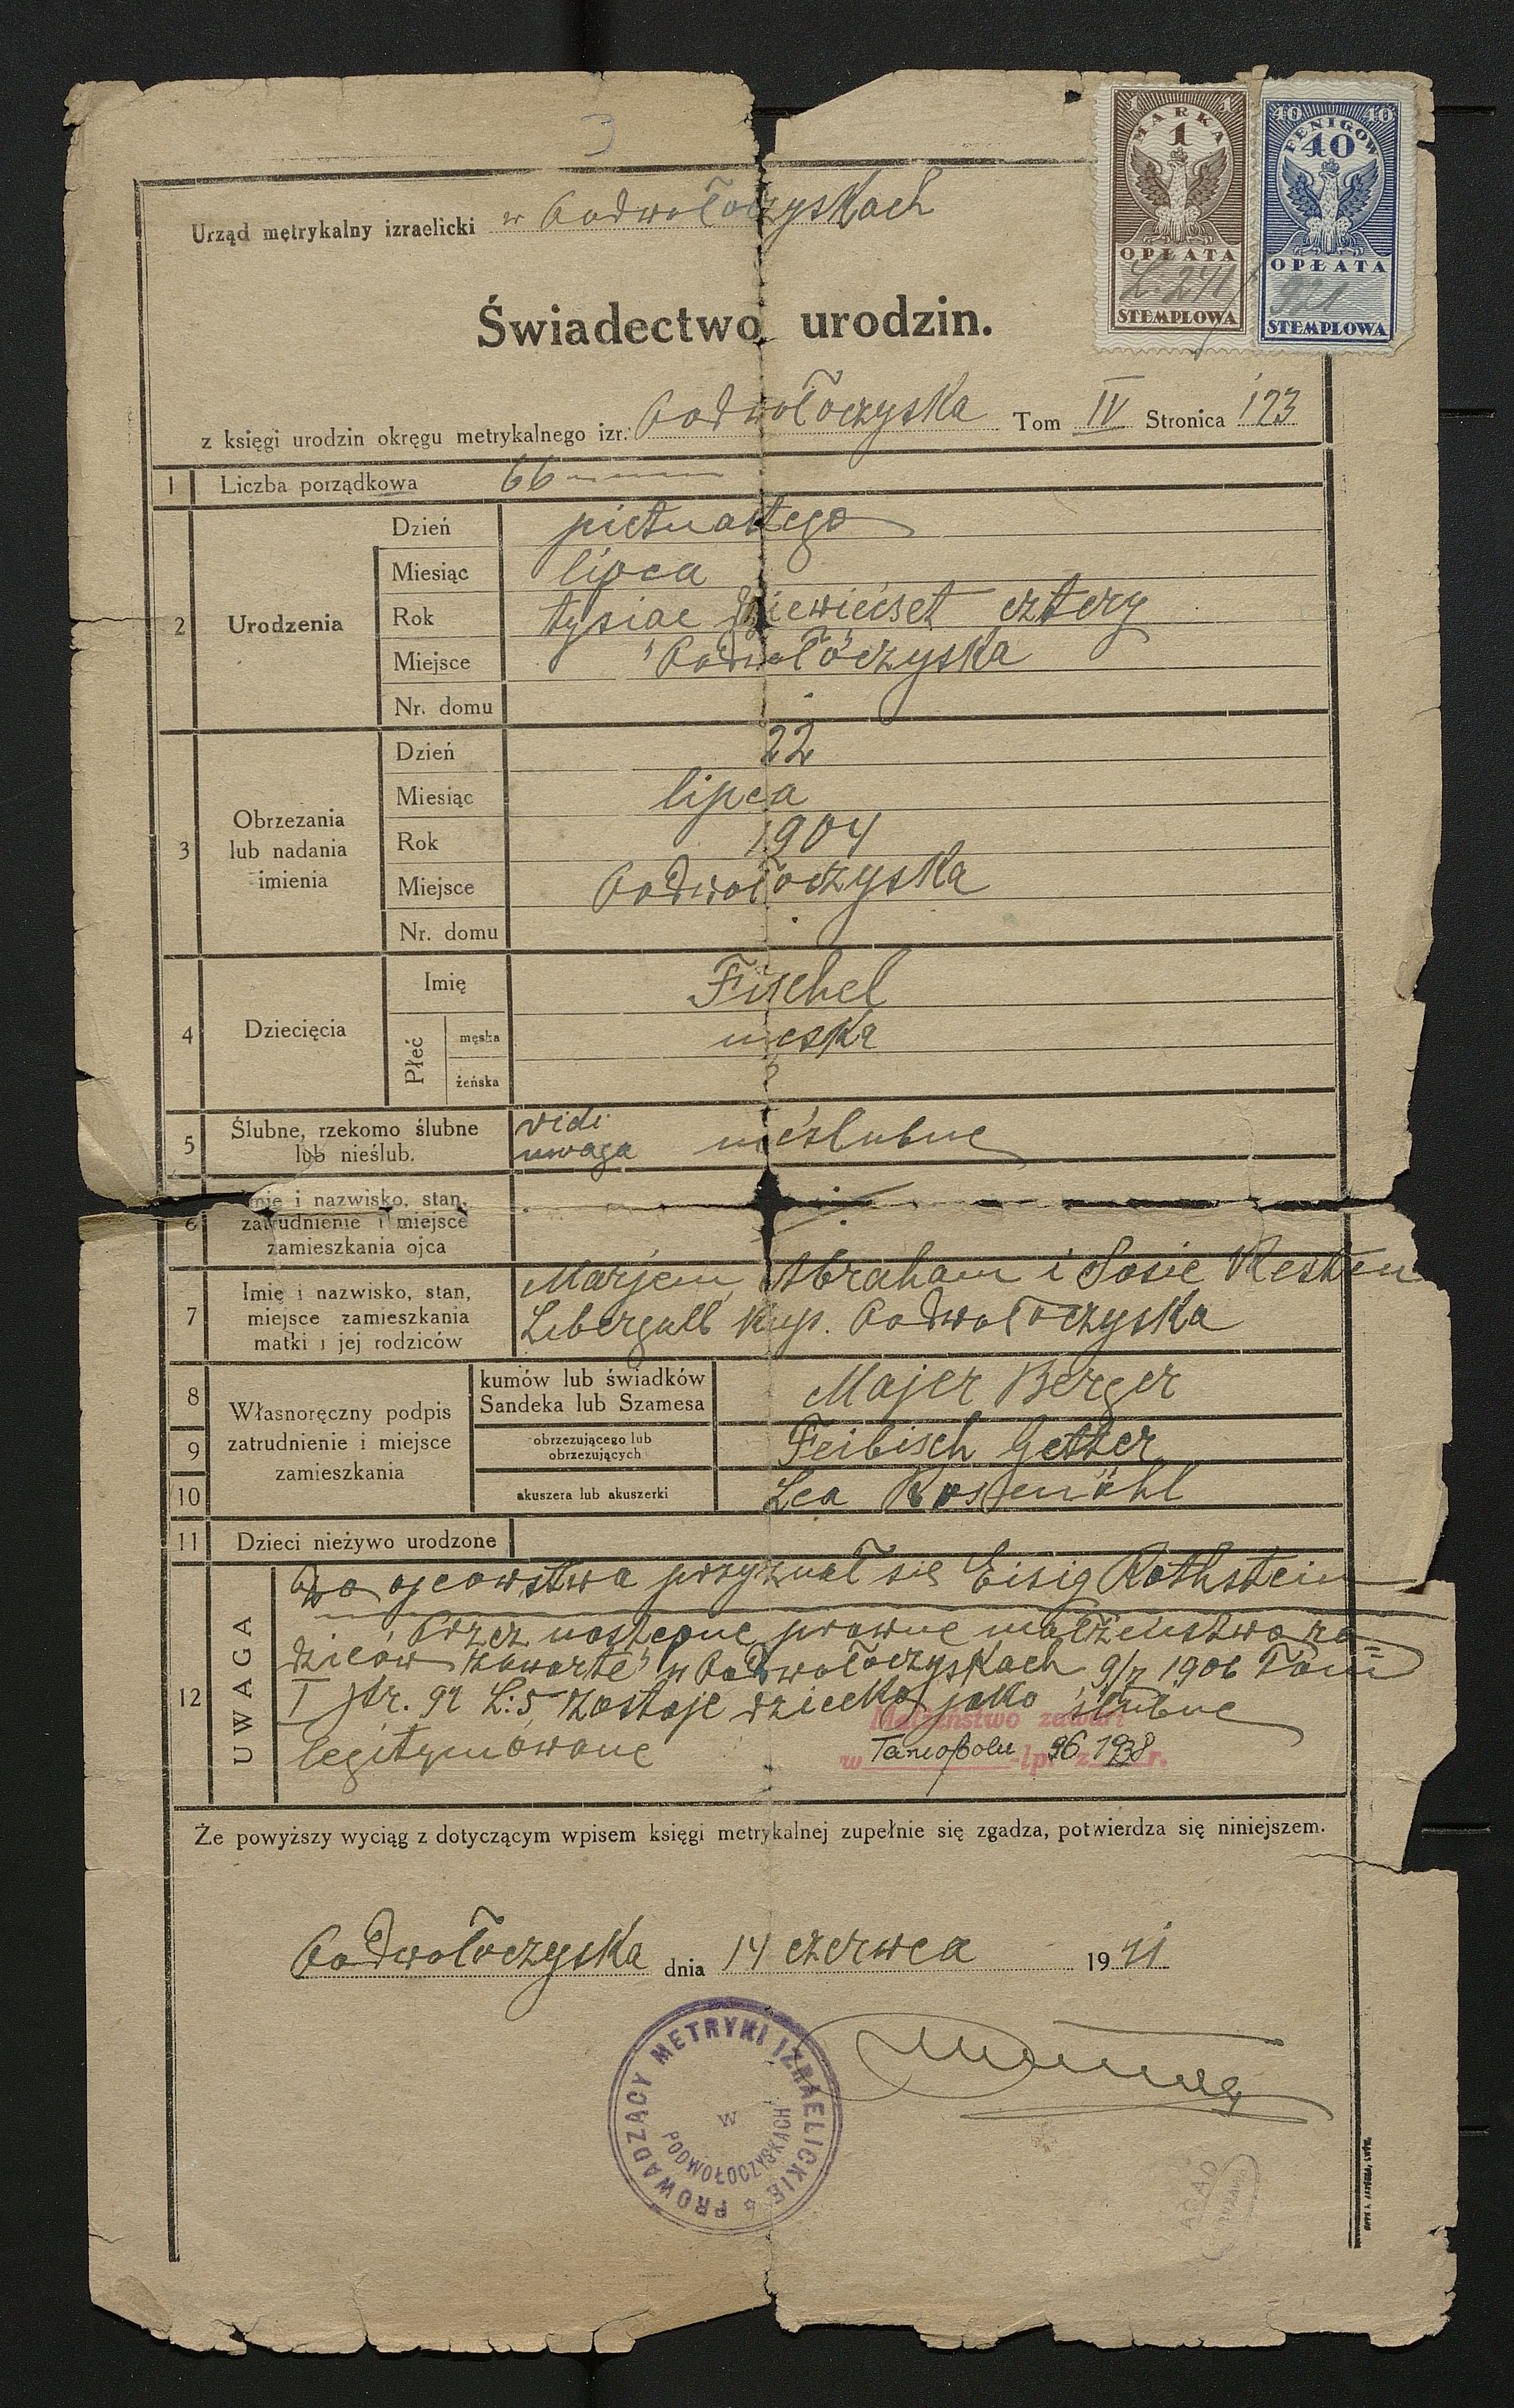 3
1 1
MARKA
1
OPŁATA
L. 241
STEMPLOWA
40 40
FENIGÓW
40
OPŁATA
921
STEMPLOWA
Urząd metrykalny izraelicki w Podwołoczyskach
Świadectwo urodzin.
z księgi urodzin okręgu metrykalnego izr. Podwołoczyska Tom IV Stronica 123
1 Liczba porządkowa 66
2 Urodzenia
Dzień piętnastego
Miesiąc lipca
Rok tysiac dziewiećset cztery
Miejsce Podwołoczyska
Nr. domu
3 Obrzezania
lub nadania
imienia
Dzień 22
Miesiąc lipca
Rok 1904
Miejsce Podwołoczyska
Nr. domu
4 Dziecięcia
Imię Fischel
Płeć
męska meska
żeńska
5 Ślubne, rzekomo ślubne
lub nieślub.
vidi
uwaga nieślubne
6 Imię i nazwisko, stan,
zatrudnienie i miejsce
zamieszkania ojca
7 Imię i nazwisko, stan,
miejsce zamieszkania
matki i jej rodziców
Marjem, Abraham i Sosie
kup. Podwołoczyska
Własnoręczny podpis
zatrudnienie i miejsce
zamieszkania
8 kumów lub świadków
Sandeka lub Szamesa
Majer Berger
9 obrzezującego lub
obrzezujących
Feibisch
10 akuszera lub akuszerki
Lea
11 Dzieci nieżywo urodzone
12 UWAGA
Do ojcowstwa przyznał się Eisig Rothstein
Przez nastepne prawne małżeństwo ro=
dziców zawarte w Podwołoczyskach 9/7 1906 Tom
I str. 92 L: 5 zostaje dziecko jako ślubne
legitymowane
Małżeństwo zawarł
w Tarnopolu lp. 96 z 1938 r.
Że powyższy wyciąg z dotyczącym wpisem księgi metrykalnej zupełnie się zgadza, potwierdza się niniejszem.
Podwołoczyska dnia 14 czerwca 1921
PROWADZĄCY METRYKI IZRAELICKIE
W
PODWOŁOCZYSKACH